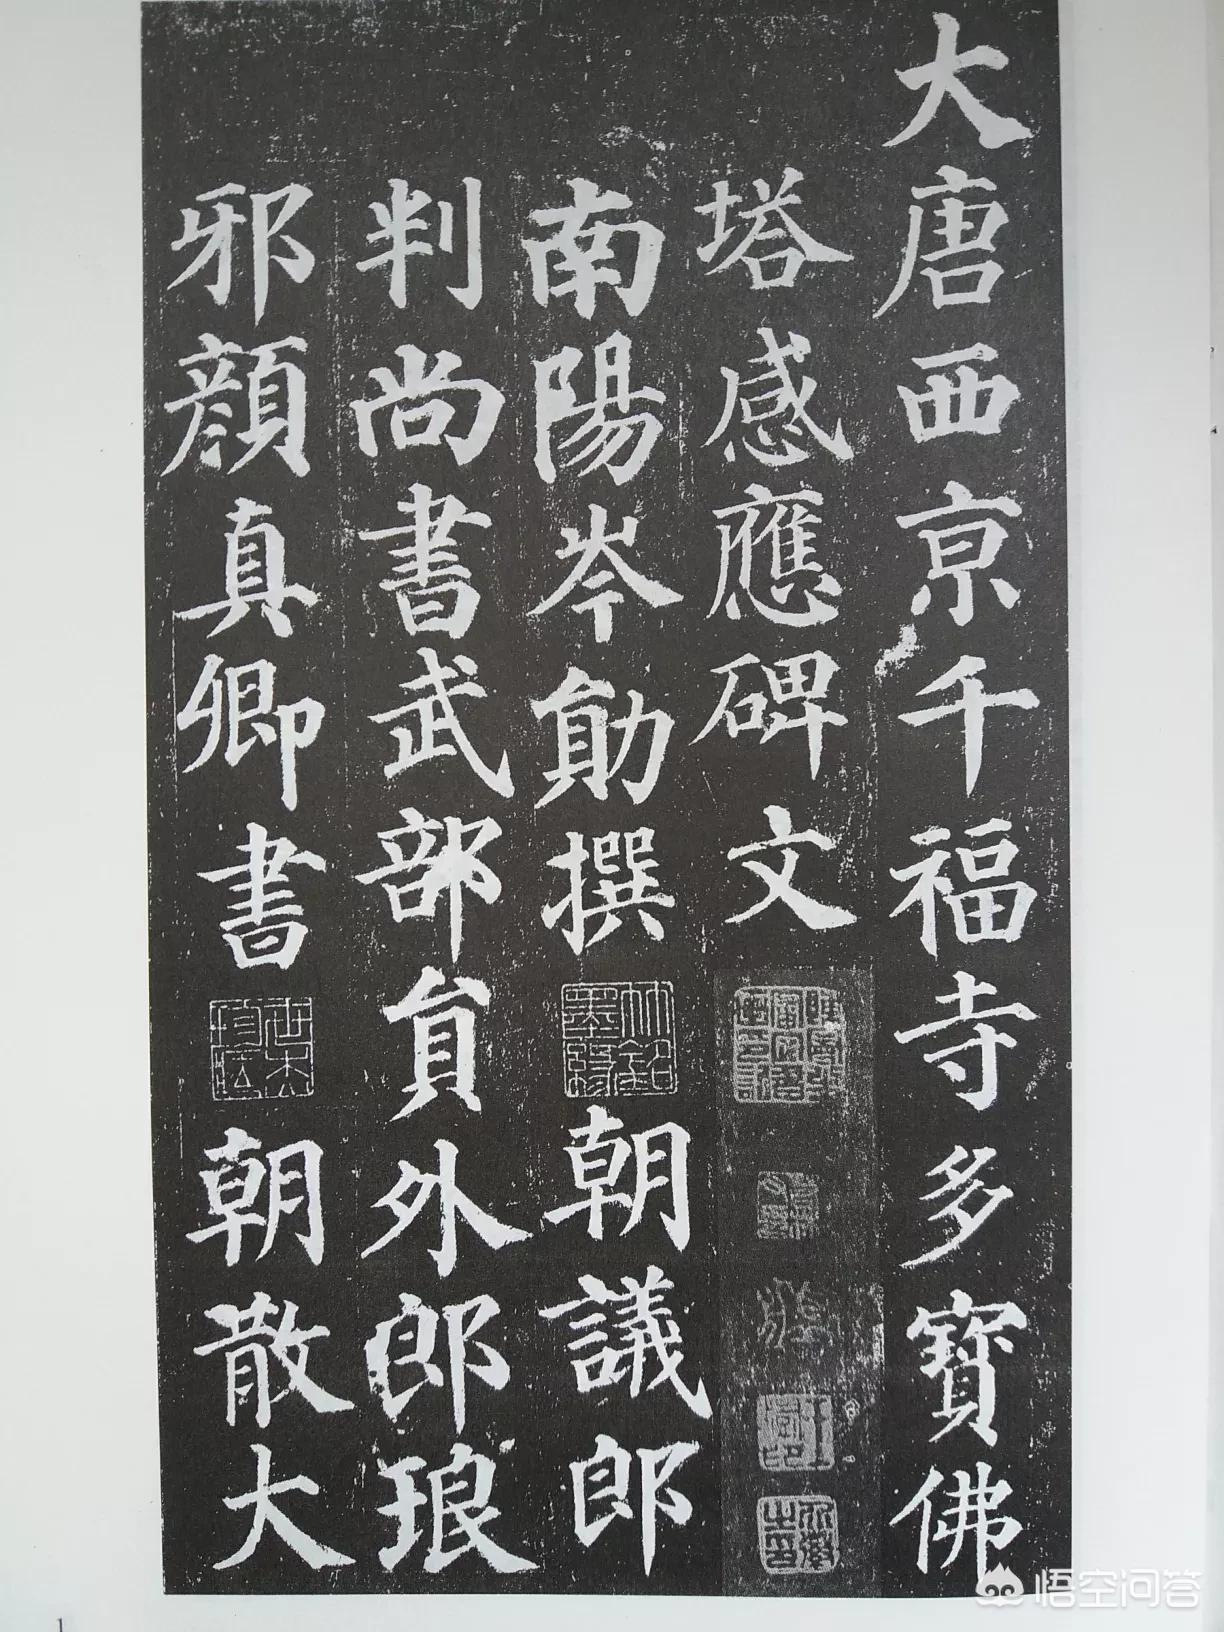 大唐西京千福寺多寶佛
塔感應碑文
南陽岑勛撰朝議郎
判尚書武部員外郎琅
邪顏真卿書朝散大
1
悟空问答